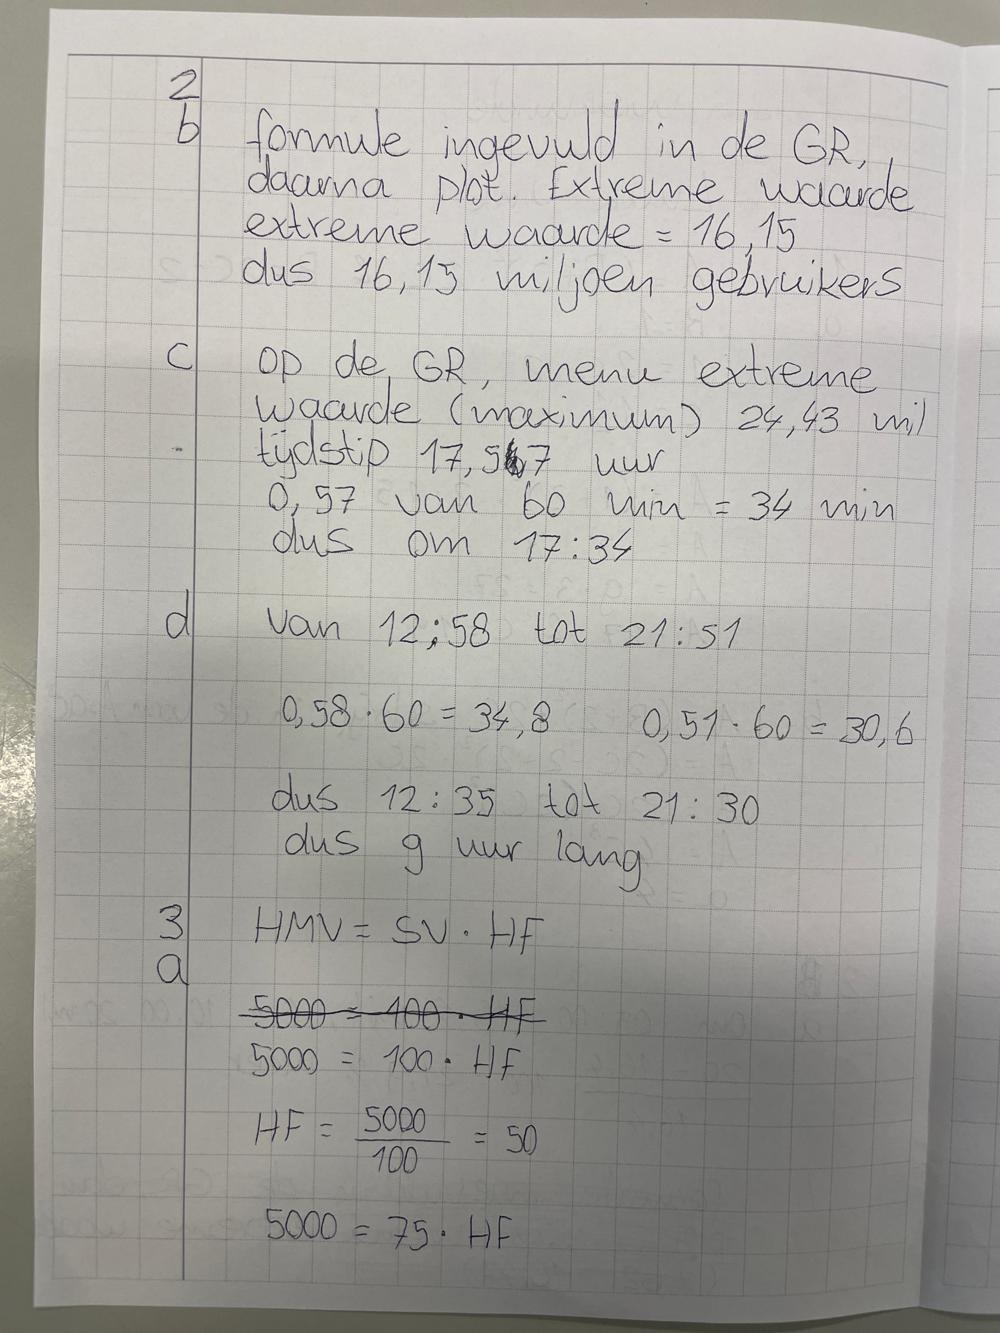 2
b formule ingevuld in de GR,
daarna plot. Extreme waarde
extreme waarde = 16,15
dus 16,15 miljoen gebruikers
c op de GR, menu extreme
waarde (maximum) 24,43 mil
tijdstip 17,57 uur
0,57 van 60 min = 34 min
dus om 17:34
d van 12:58 tot 21:51
0,58 · 60 = 34,8 0,51 · 60 = 30,6
dus 12:35 tot 21:30
dus 9 uur lang
3 HMV = SV · HF
a
5000 = 100 · HF
5000 = 100 · HF
HF = 5000/100 = 50
5000 = 75 · HF